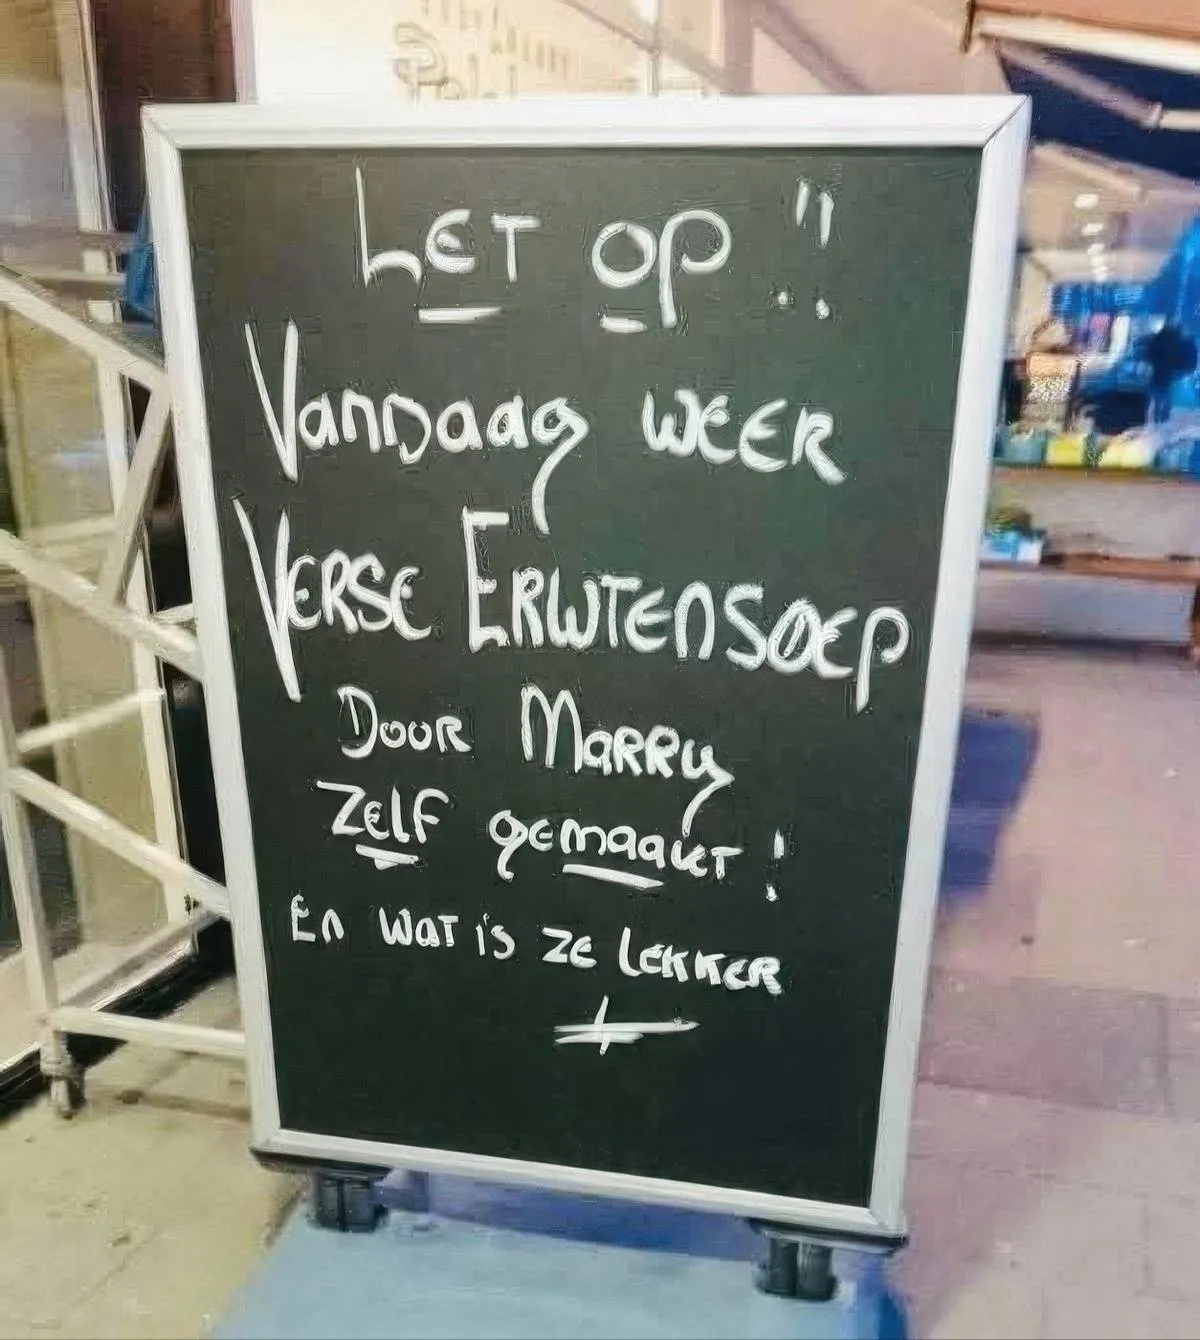 LET OP !!
VANDAAG WEER
VERSE ERWTENSOEP
DOOR MARRY
ZELF gEMAAKT !
EN WAT IS ZE LEKKER